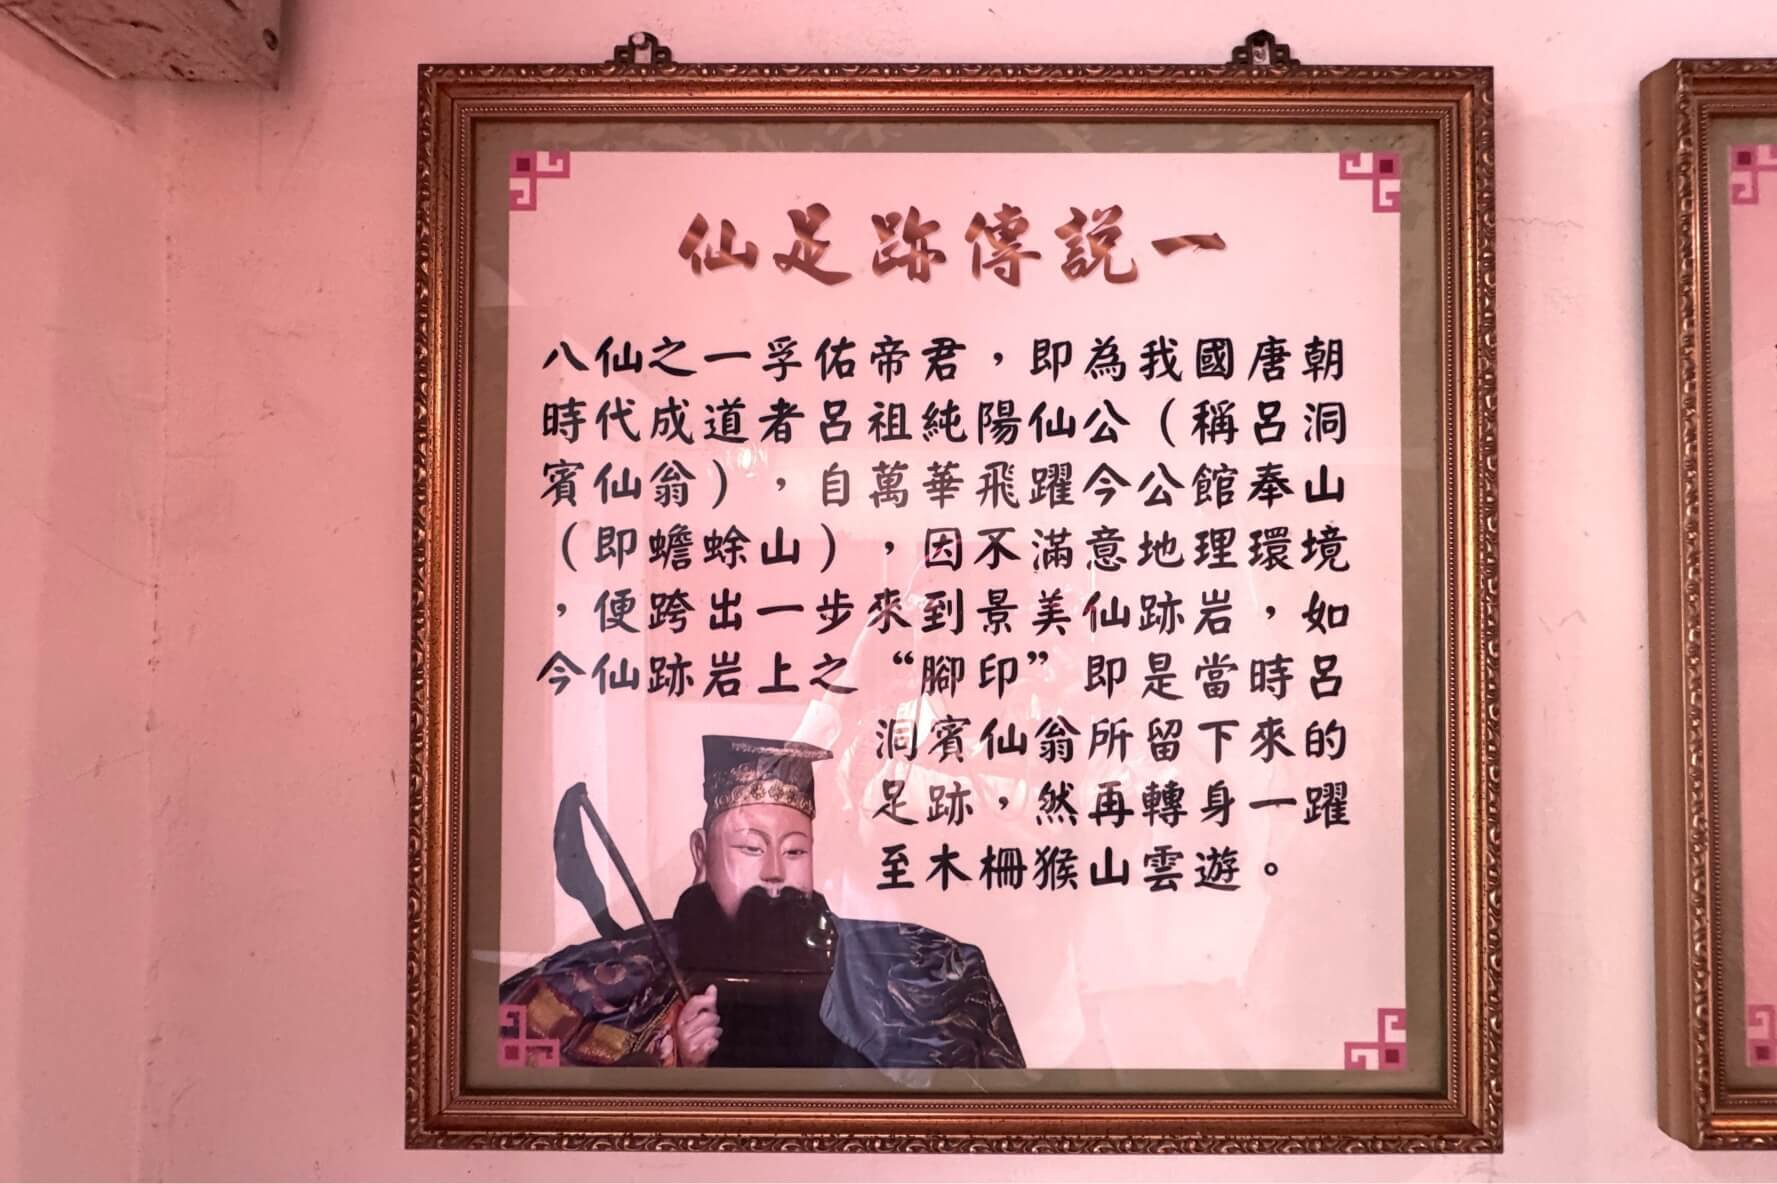 仙足跡傳說一
八仙之一孚佑帝君，即為我國唐朝
時代成道者呂祖純陽仙公（稱呂洞
賓仙翁），自萬華飛躍今公館奉山
（即蟾蜍山），因不滿意地理環境
，便跨出一步來到景美仙跡岩，如
今仙跡岩上之“腳印”即是當時呂
洞賓仙翁所留下來的
足跡，然再轉身一躍
至木柵猴山雲遊。